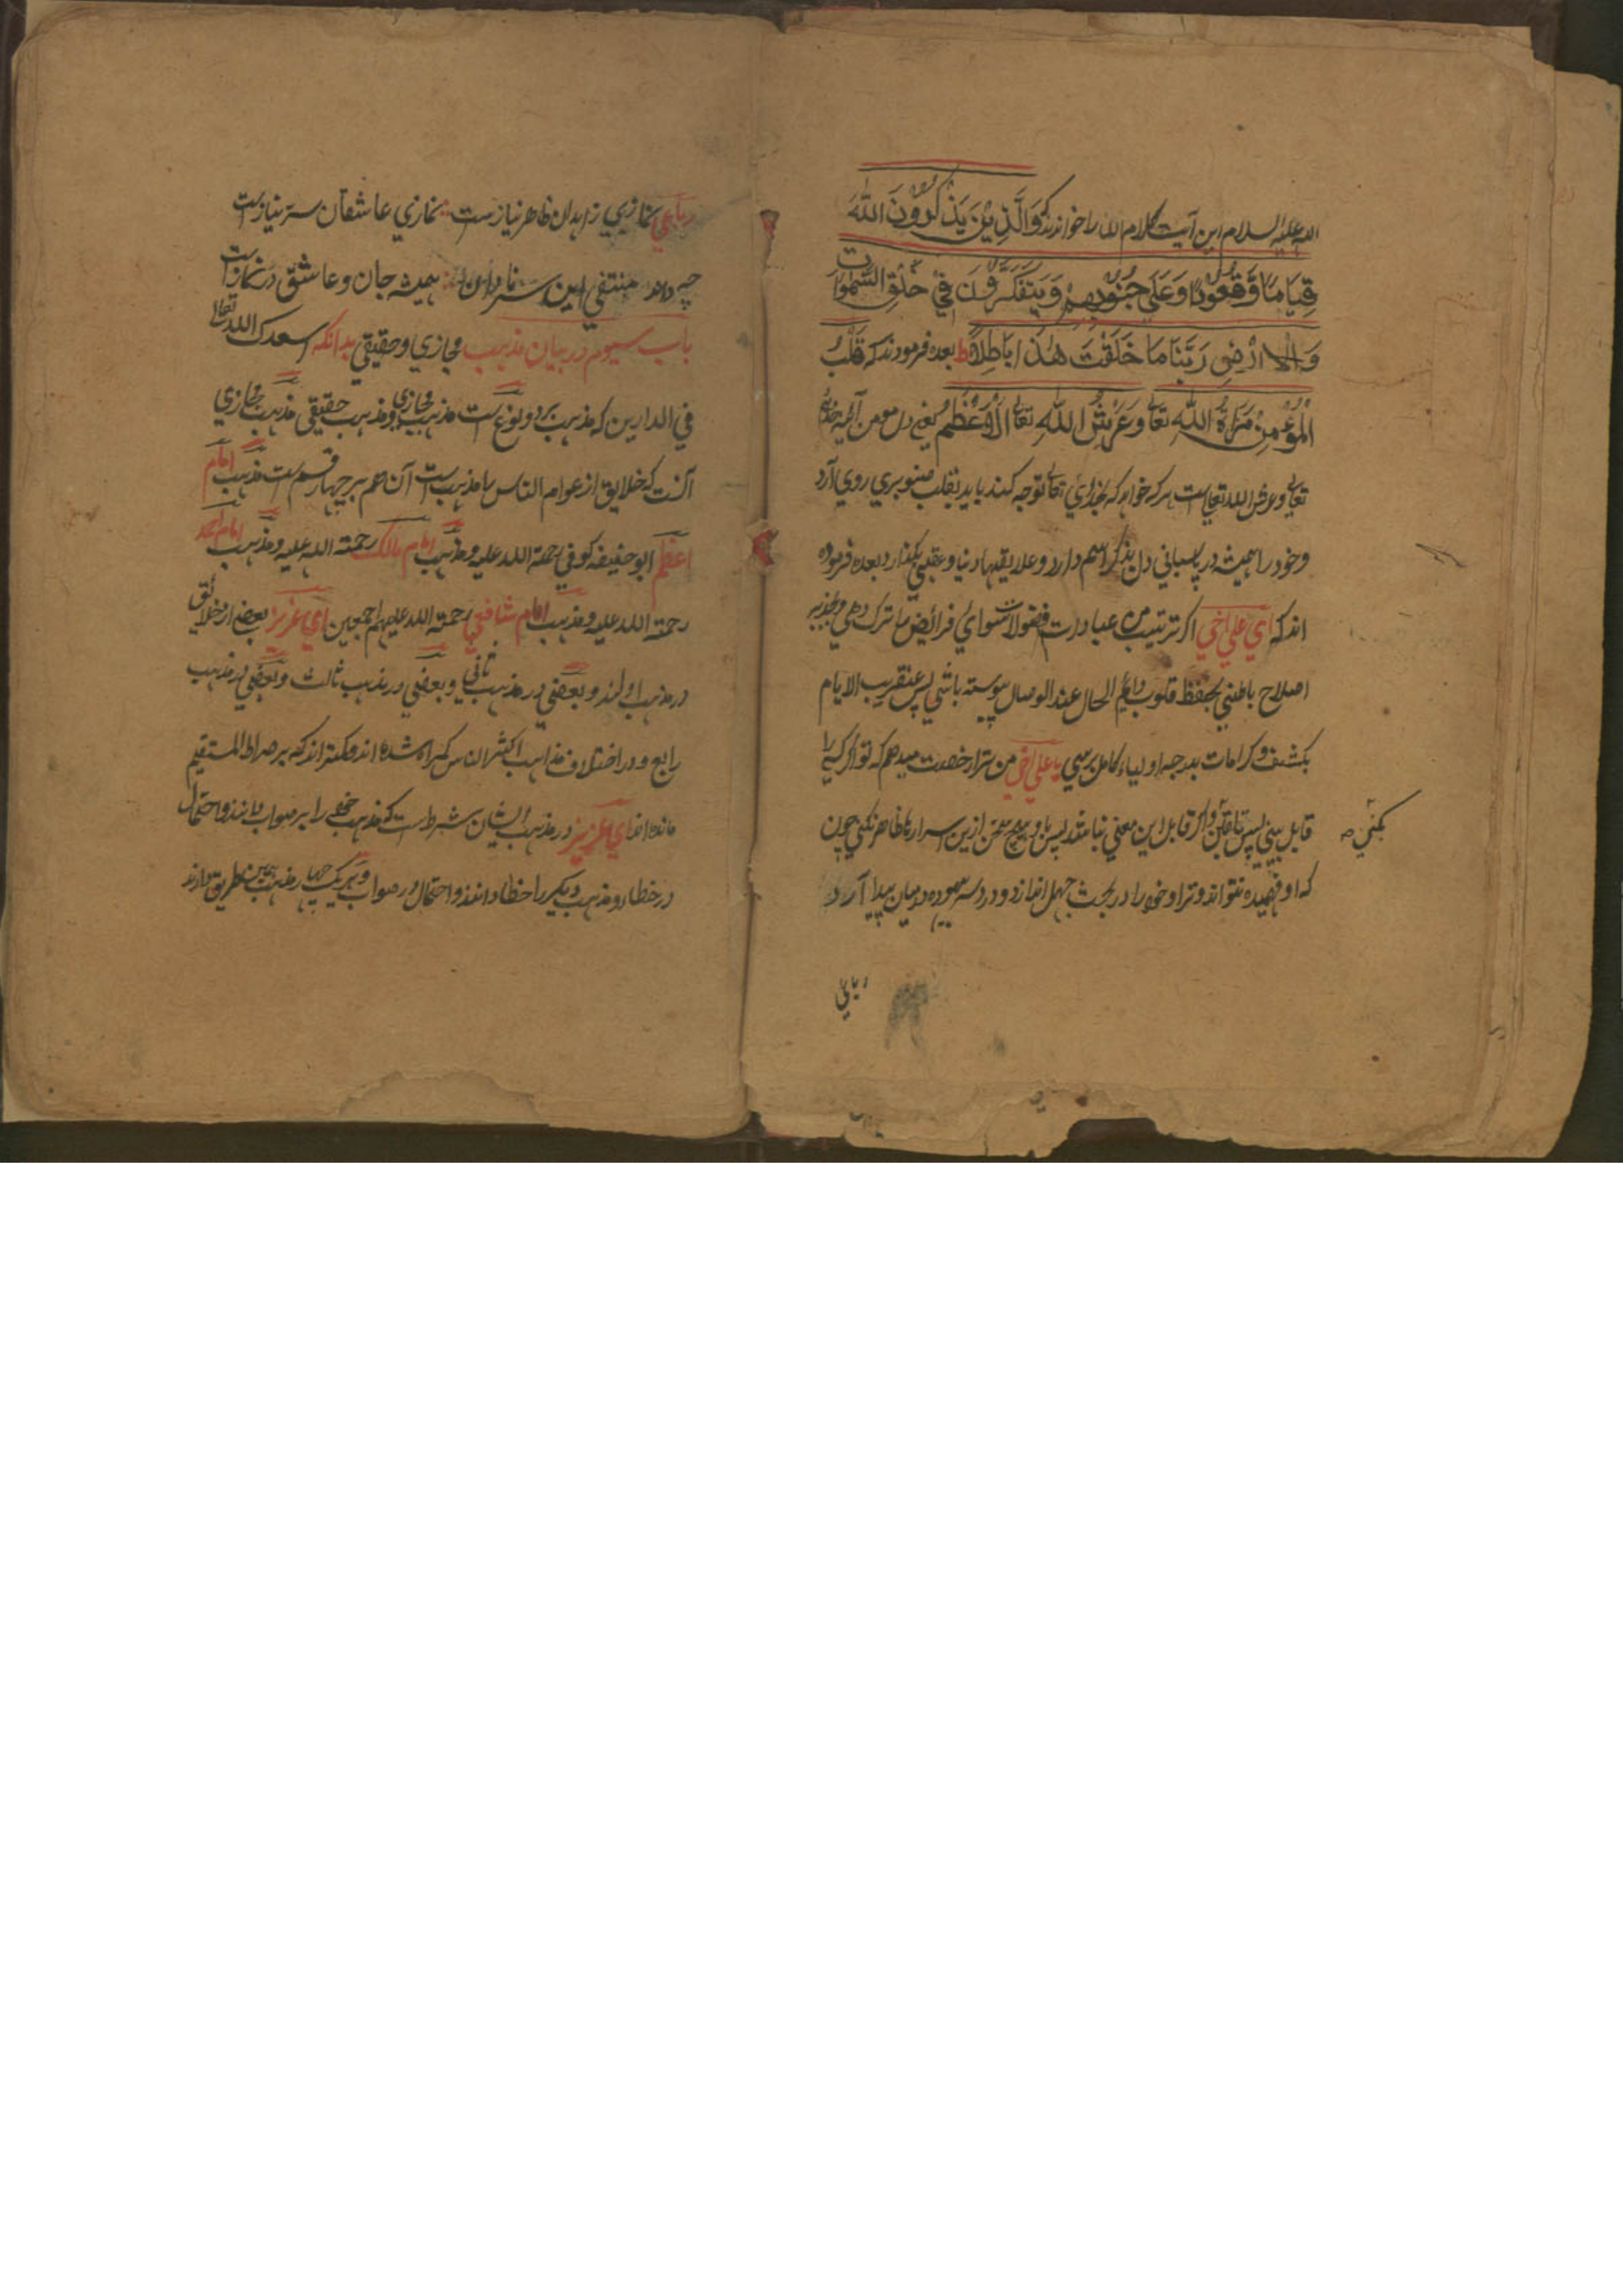 الله علیه السلام این آیت کلام الله را خواندند که وَالَّذِیْنَ یَذْکُرُوْنَ اللّٰهَ
قِیَامًا وَّقُعُوْدًا وَعَلٰی جُنُوْبِهِمْ وَیَتَفَکَّرُوْنَ فِیْ خَلْقِ السَّمٰوَاتِ
وَالْاَرْضِ رَبَّنَا مَا خَلَقْتَ هٰذَا بَاطِلًا ط بعده فرمودند که قَلْبُ
الْمُؤْمِنِ مِرَاةُ اللّٰهِ تعالی وَعَرْشُ اللّٰهِ تعالی الْاَعْظَمُ یعنی دل مومن آئینه خدای
تعالی و عرش الله تعالی است هر که خواهد که بخدای تعالی توجه کند باید بقلب صنوبری روی آرد
و خود را همیشه در پاسبانی دل بذکر اسم دارد و علایقها دنیا و عقبی بگذارد بعده فرموده
اند که ای علی اخی اگر ترتیب من عبادات فضولات سوای فرائض را ترک دهی و بجذبه
اصلاح باطنی بحفظ قلوب دایم الحال عند الوصال پیوسته باشی پس عنقریب الایام
بکشف و کرامات بدرجه اولیاء کامل برسی یا علی اخی من ترا رخصت میدهم که تو اگر کسی را
قابل بینی پس تلقین و اگر قابل این معنی نباشد پس باو هیچ سخن ازین اسرارها ظاهر نکنی چون
بکنی صح
که او فهمیده نتواند و ترا و خود را در بحث جهل اندازد و دردسر بیهوده درمیان پیدا آرد
رباعی
رباعی نمازی زاهدان ظاهر نیازست نمازی عاشقان ستر نیازست
چه داند منتفی این سر همیشه جان و عاشق در نمازست
باب سیوم در بیان مذهب مجازی و حقیقی بدانکه اسعدک الله تعالی
فی الدارین که مذهب بر دو نوع است مذهب مجازی و مذهب حقیقی مذهب مجازی
آنست که خلایق از عوام الناس با مذهب است آن هم بر چهار قسم است مذهب امام
اعظم ابو حنیفه کوفی رحمة الله علیه و مذهب امام مالک رحمة الله علیه و مذهب امام احمد
رحمة الله علیه و مذهب امام شافعی رحمة الله علیهم اجمعین ای عزیز بعضی از خلائق
در مذهب اولند و بعضی در مذهب ثانی و بعضی در مذهب ثالث و بعضی در مذهب
رابع و در اختلاف مذاهب اکثر الناس گمراه شده اند و کمتر اند که بر صراط المستقیم
مانده اند ای عزیز در مذهب ایشان شرط است که مذهب خود را بر صواب دانند و احتمال
در خطا و مذهب دیگر را خطا دانند و احتمال در صواب و هر یک چهار مذهب همین طریق دارند